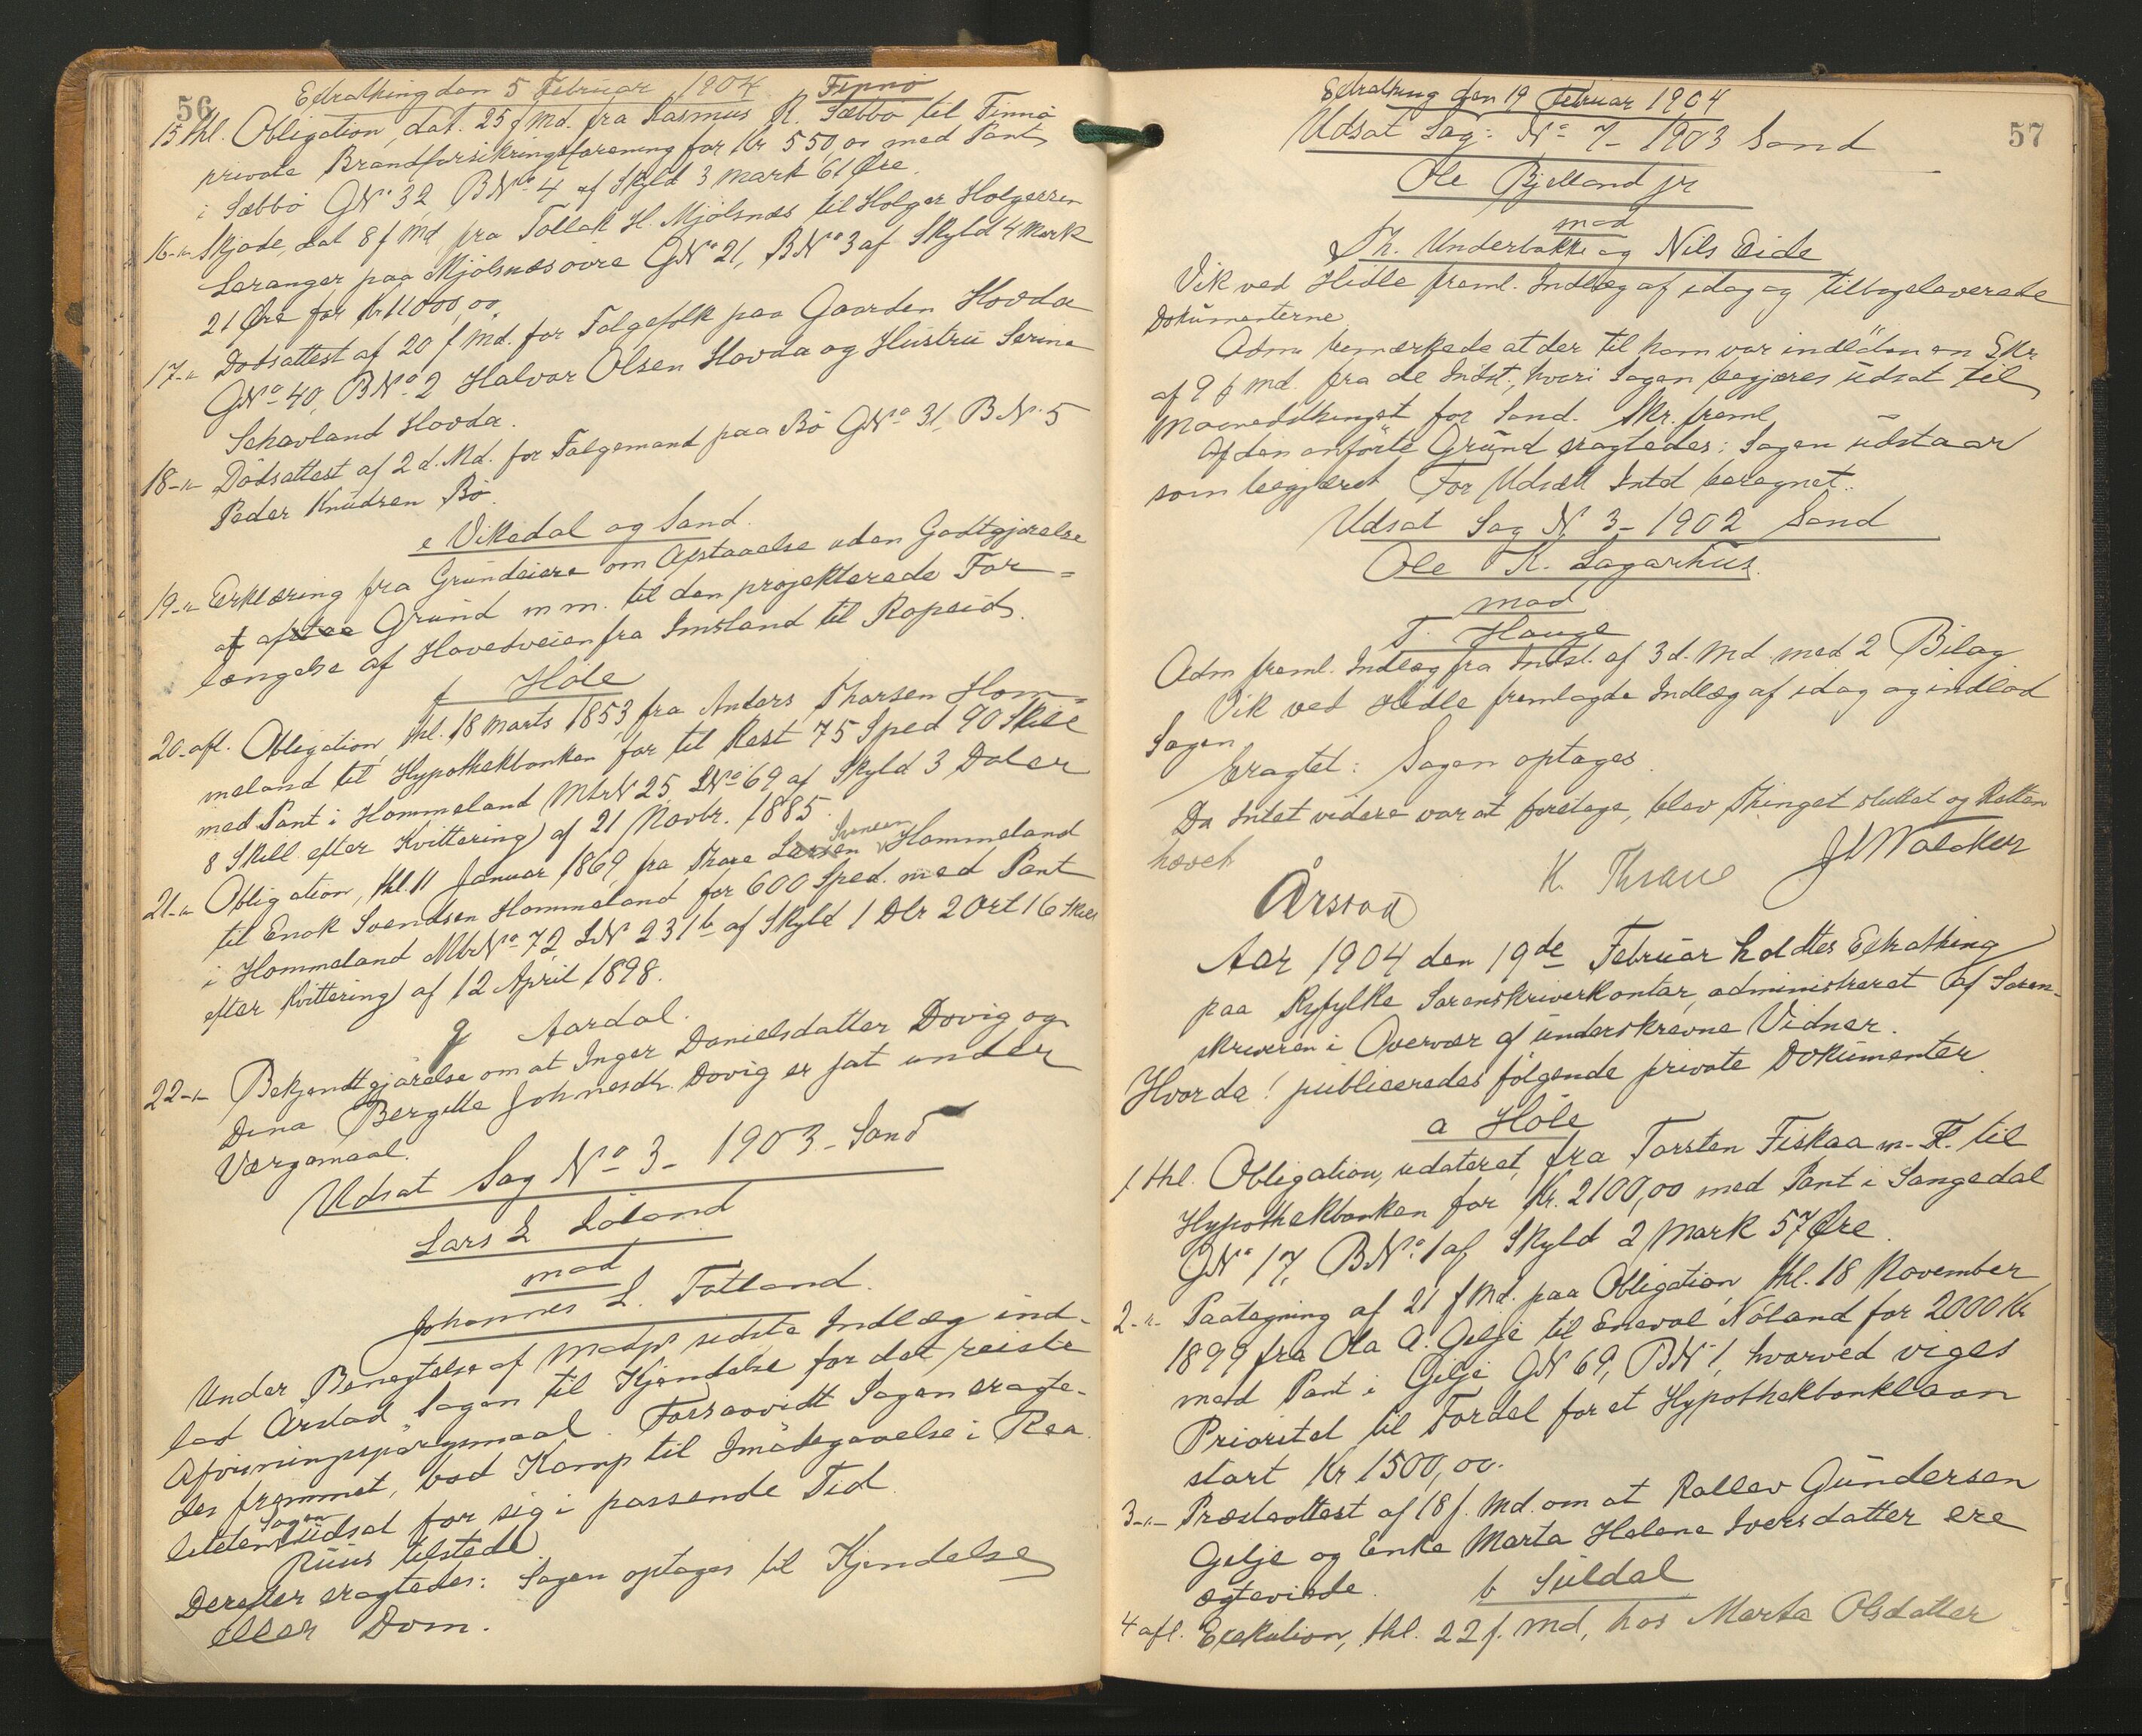 56
Extrathing den 5 Februar 1904. Finnø
15 thl. Obligation, dat. 25 f Md. fra Rasmus R. Sæbbø til Finnø
private Brandforsikringsforening for Kr 550,00 med Pant
i Sæbbø GNo 32 BNo 4 af Skyld 3 mark 61 Øre.
16 -"- Skjøde, dat 8 f Md fra Tollak H. Mjølsnæs til Holger Holgersen
Leranger paa Mjølsnæs øvre GNo 21, BNo 3 af Skyld 4 Mark
21 Øre for Kr 11000,00.
17 -"- Dødsattest af 20 f Md. for Folgefolk paa Gaarden Hovda
GNo 40, BNo 2 Halvor Olsen Hovda og Hustru Serina
Sehavland Hovda.
18 -"- Dødsattest af 2 d. Md. for Folgemand paa Bø GNo 31, BN. 5
Peder Knudsen Bø.
e Vikedal og Sand.
19 -"- Erklæring fra Grundeiere om Afstaaelse uden Godtgjørelse
af afstaa Grund m m. til den projekterede For=
længelse af Hovedveien fra Imsland til Ropeid.
f Høle
20. afl. Obligation, thl. 18 Marts 1853, fra Anders Thorsen Hom=
meland til Hypothekbanken for til Rest 75 Sped 90 Skill
med Pant i Hommeland MtrN 25 LNo 69 af Skyld 3 Daler
8 Skill efter Kvittering af 21 Novbr. 1885.
21 -"- Obligation, thl. 11 Januar 1869, fra Thore Larsen Svensen Hommeland
til Enok Svendsen Hommeland for 600 Sped. med Pant
i Hommeland MtrNo 72 LN 231b af Skyld 1 Dlr 2 Ort 16 Skill
efter Kvittering af 12 April 1898.
g Aardal.
22 -"- Bekjendtgjørelse om at Inger Danielsdatter Døvig og
Dina Bergitte Johnesdtr. Døvig er sat under
Værgemaal.
Udsat Sag No 3 - 1903 - Sand
Lars L Løland
mod
Johannes L. Tøtland.
Under Benegtelse af Modp. sidste Indlæg ind-
lod Årstad Sagen til Kjendelse for det reiste
Afvisningsspørgsmaal. Forsaavidt Sagen eragte-
des fremmet, bad Kamp til Imødegaaelse i Rea
liteten Sagen udsat for sig i passende Tid.
Ruus tilstede
Derefter eragtedes: Sagen optages til Kjendelse
eller Dom.
57
Extrathing den 19 Februar 1904
Udsat Sag: No 7 - 1903 Sand
Ole Bjelland jr
mod
Th. Underbakke og Nils Eide
Vik ved Hidle freml. Indlæg af idag og tilbageleverede
Dokumenterne
Adm. bemærkede at der til ham var indløben en Skr.
af 9 f Md. fra de Indst., hvori Sagen begjæres udsat til
Maanedsthinget for Sand. Skr. freml
Af den anførte Grund eragtedes: Sagen udstaar
som begjæret For Udsætt Intd beregnet.
Udsat Sag N 3 - 1902 Sand
Ole K. Lagarhus
mod
T. Hauge
Adm freml. Indlæg fra Indst. af 3 d. Md med 2 Bilag
Vik ved Hidle fremlagde Indlæg af idag og indlod
Sagen
Eragtet: Sagen optages.
Da Intet videre var at foretage, blev Thinget sluttet og Retten
hævet
Årstad K. Thraue
Aar 1904 den 19de Februar holdtes Extrathing
paa Ryfylke Sorenskriverkontor, administreret af Soren-
skriveren i Overvær af underskrevne Vidner.
Hvorda! publiceredes følgende private Dokumenter
a Høle
1 thl. Obligation, udateret, fra Torsten Fiskaa m. Fl. til
Hypothekbanken for Kr. 2100,00 med Pant i Sangedal
GNo 17, BNo 1 af Skyld 2 Mark 57 Øre.
2 -"- Paategning af 21 f Md. paa Obligation, thl. 18 November
1899 fra Ola A. Gilje til Enevol Nøland for 2000 Kr
med Pant i Gilje GN 69, BN 1, hvorved viges
Prioritet til Fordel for et Hypothekbanklaan
stort Kr 1500,00.
3 -"- Præsteattest af 18 f. Md. om at Rallev Gundersen
Gilje og Enke Marta Helene Iversdatter ere
ægteviede.
b Suldal
4 afl. Exekution, thl. 22 f. Md, hos Marta Olsdatter